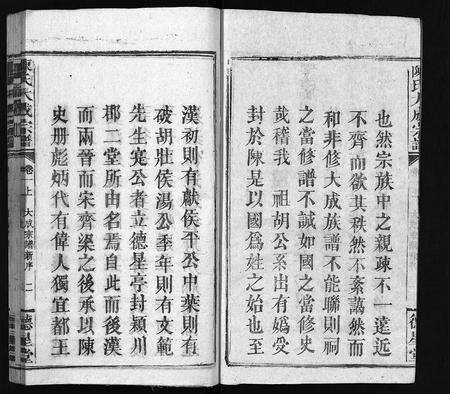 也然宗族中之親疎不一遠近
不齊而欲其秩然不紊藹然而
和非修大成族譜不能聯則祠
之當修譜不誠如國之當修史
哉稽我 祖胡公系出有媯受
封於陳是以國為姓之始也至
陳氏大成宗譜
德星堂
漢初則有獻侯平公中葉則有
破胡壯侯湯公季年則有文範
先生寔公者立德星亭封潁川
郡二堂所由名焉自此而後漢
而兩晉而宋齊梁之後承以陳
史册彪炳代有偉人獨宜都王
陳氏大成宗譜
卷上 大成宗譜新序 二
德星堂